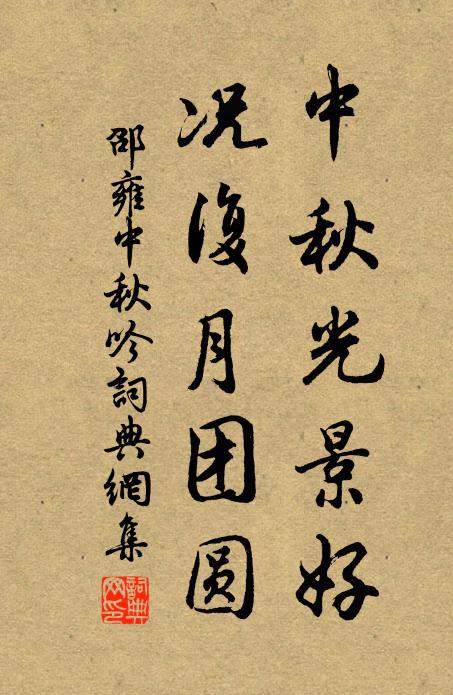 中秋光景好
况復月团圆
邵雍中秋吟詞典網集
詞典网印